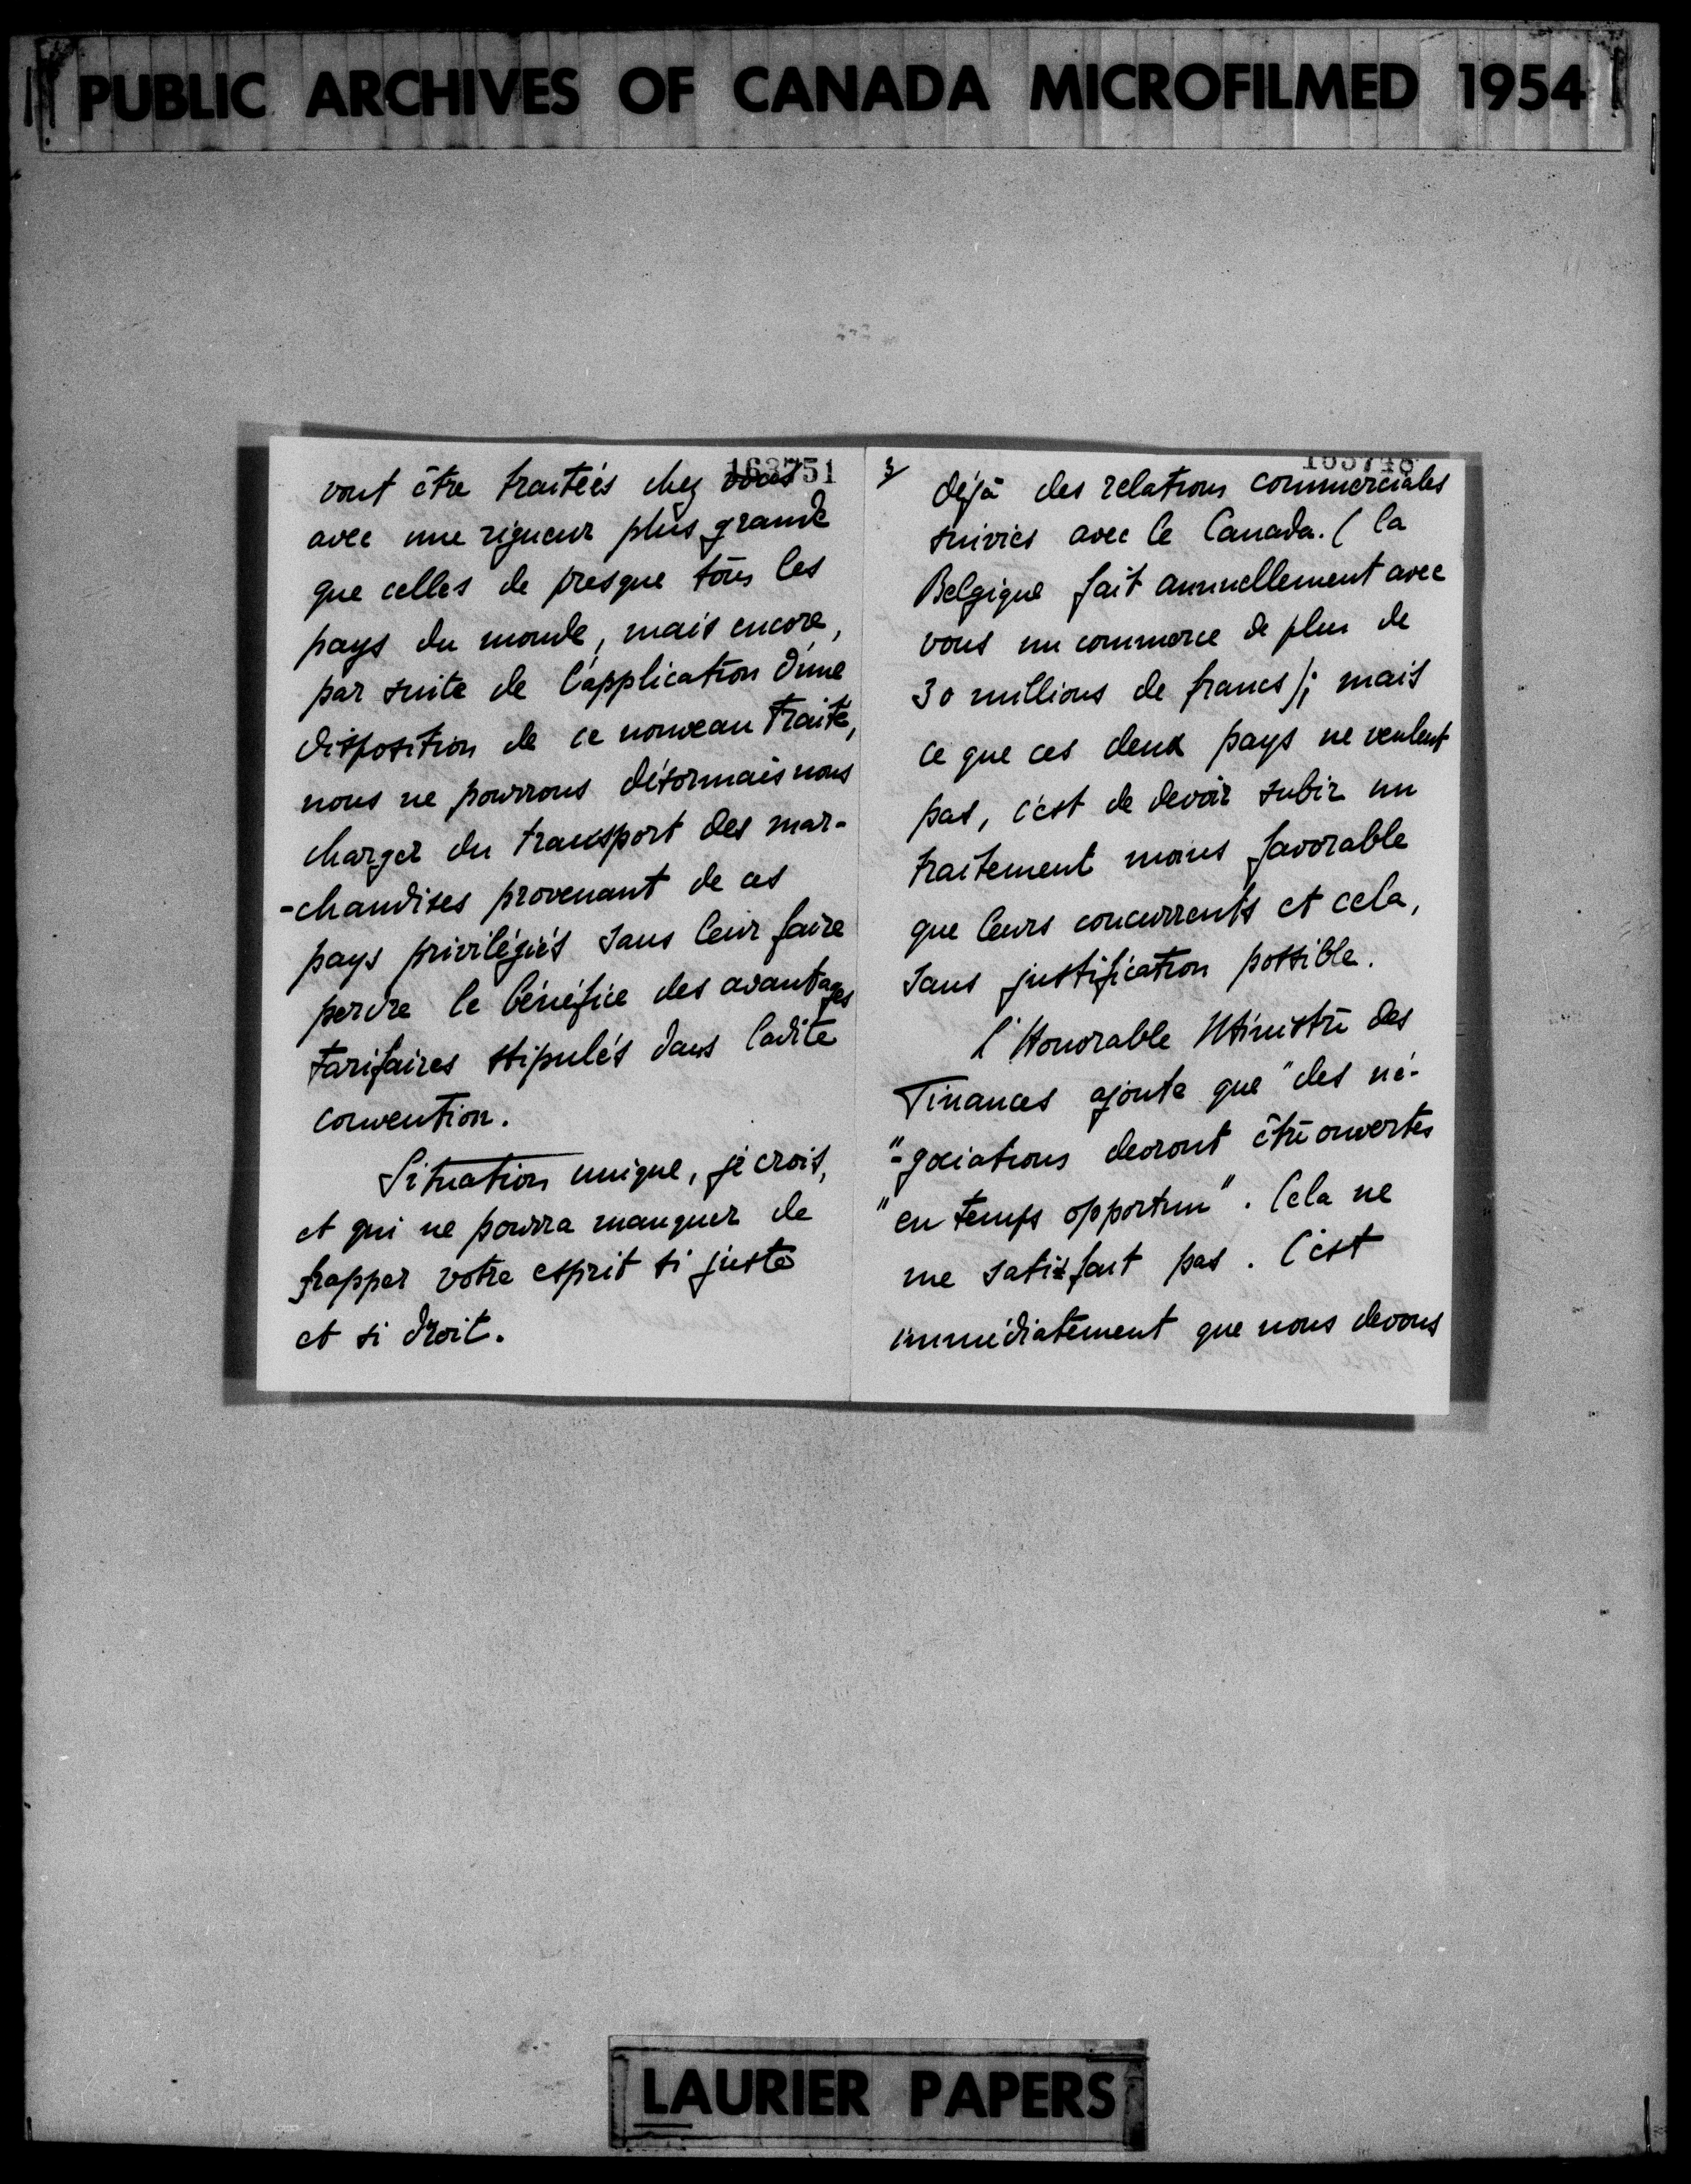 PUBLIC ARCHIVES OF CANADA MICROFILMED 1954
163751
vont être traitées chez vous
avec une rigueur plus grande
que celles de presque tous les
pays du monde, mais encore,
par suite de l'application d'une
disposition de ce nouveau Traité,
nous ne pourrons désormais nous
charger du transport des mar-
-chandises provenant de ces
pays privilégiés sans leur faire
perdre le bénéfice des avantages
tarifaires stipulés dans ladite
convention.
Situation unique, je crois,
et qui ne pourra manquer de
frapper votre esprit si juste
et si droit.
3/
déjà des relations commerciales
suivies avec le Canada. (la
Belgique fait annuellement avec
vous un commerce de plus de
30 millions de francs); mais
ce que ces deux pays ne veulent
pas, c'est de devoir subir un
traitement moins favorable
que leurs concurrents et cela,
sans justification possible.
L'Honorable Ministre des
Finances ajoute que "des né-
"-gociations devront être ouvertes
"en temps opportun". Cela ne
me satisfait pas. C'est
immédiatement que nous devons
LAURIER PAPERS